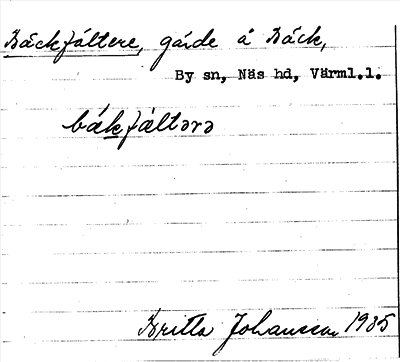 Bäckfältere, gärde å Bäck,
By sn, Näs hd, Värml.l.
bäkfältərə
Britta Johansson 1935